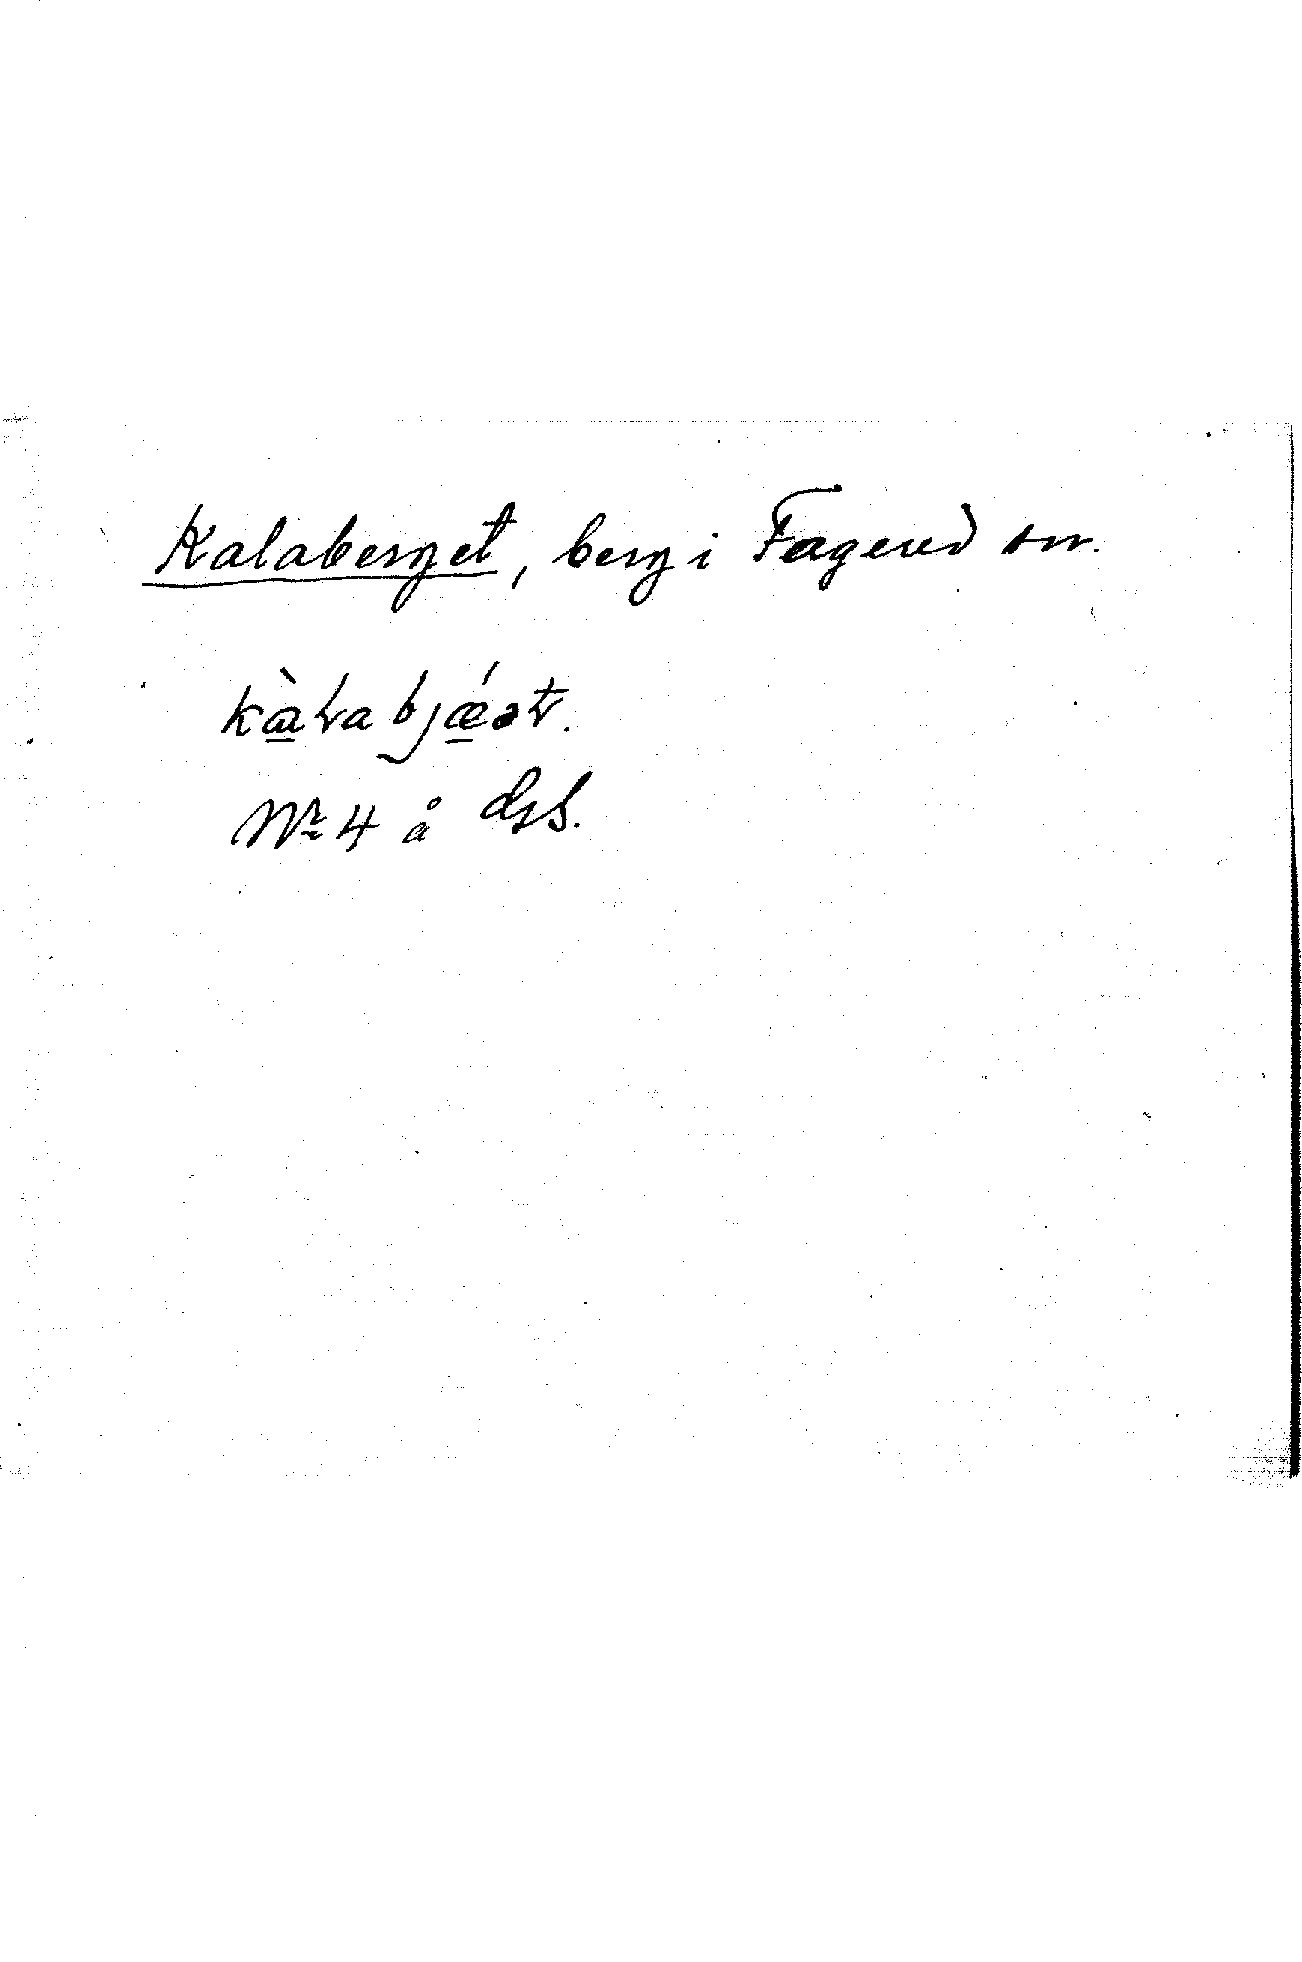 Kalaberget, berg i Fagerud snr.
kàɫabjǽət.
Nr 4 å dss.